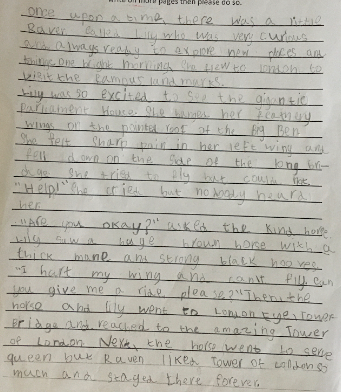 on more pages then please do so.
once upon a time there was a little
Raven called Lily who was very curious
and always ready to expore new places and
things one bright morning she flew to london to
visit the famous landmarks.
Lily was so excited to see the gigantic
Parliament House. She her feathery
wings on the pointed roof of the Big Ben
She felt sharp pain in her left wing and
fell down on the side of the long bri-
dge she tried to fly but could not.
"Help!" She cried but nobody heard
her.
"Are you okay?" asked the kind horse
Lily saw a huge brown horse with a
thick mane and strong black hooves
"I hart my wing and can't fly. can
you give me a ride, please?" Then, the
horse and lily went to London Eye, Tower
Bridge and reached to the amazing Tower
of London. Next, the horse went to serve
queen but Raven liked Tower of London so
much and stayed there forever.